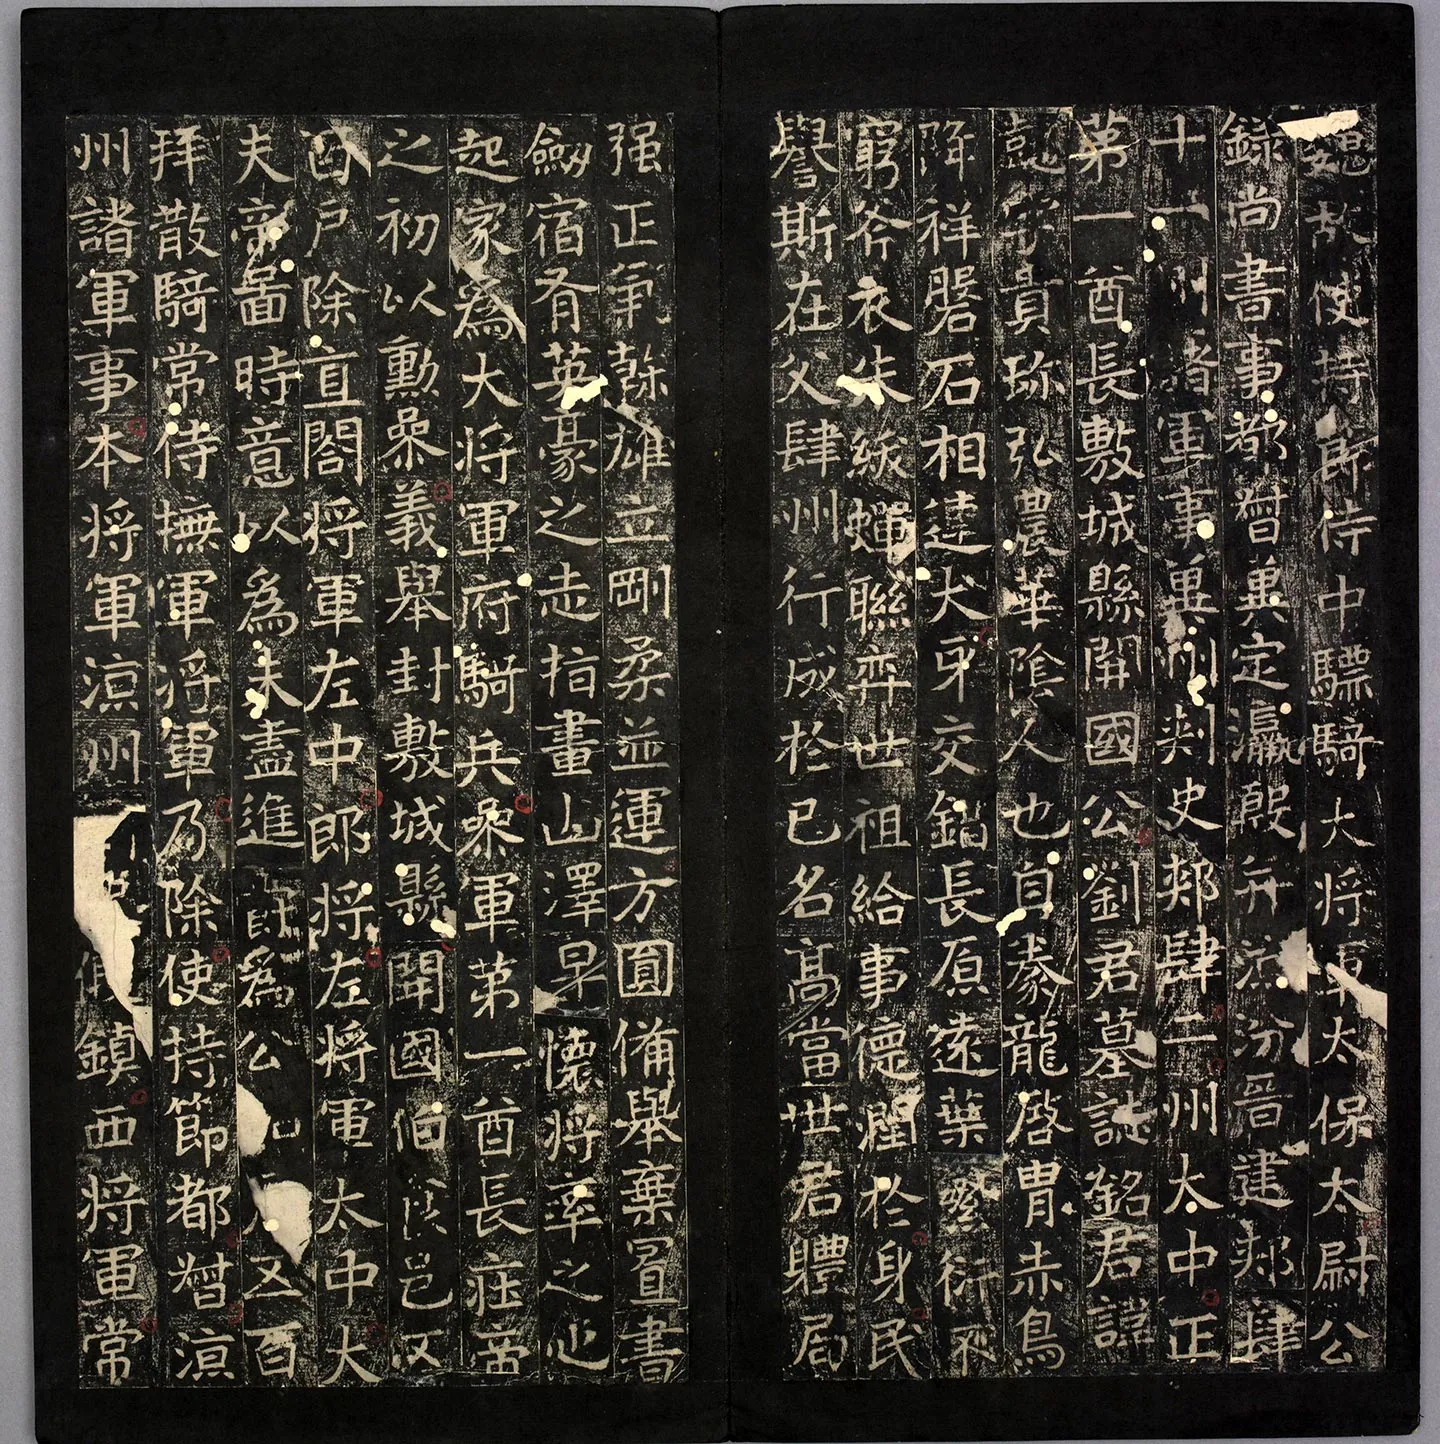 魏故使持節侍中驃騎大將軍太保太尉公
錄尚書事都督冀定瀛殷并涼汾晉建郟肆
十一州諸軍事冀州刺史郟肆二州大中正
第一酋長敷城縣開國公劉君墓誌銘君諱
懿字貴珍弘農華陰人也自豢龍啓胄赤烏
降祥磐石相連犬牙交錯長原遠葉繁衍不
窮斧衣朱紱蟬聯弈世祖給事德潤於身民
譽斯在父肆州行成於己名高當世君體局
强正氣榦雄立剛柔並運方圓備舉棄置書
劒宿有英豪之志指畫山澤早懷將率之心
起家為大將軍府騎兵參軍第一酋長莊帝
之初以勳參義舉封敷城縣開國伯食邑五
百戶除直閤將軍左中郎將左將軍太中大
夫帝啚時意以為未盡進爵為公五百
拜散騎常侍撫軍將軍乃除使持節都督涼
州諸軍事本將軍涼州假鎮西將軍常